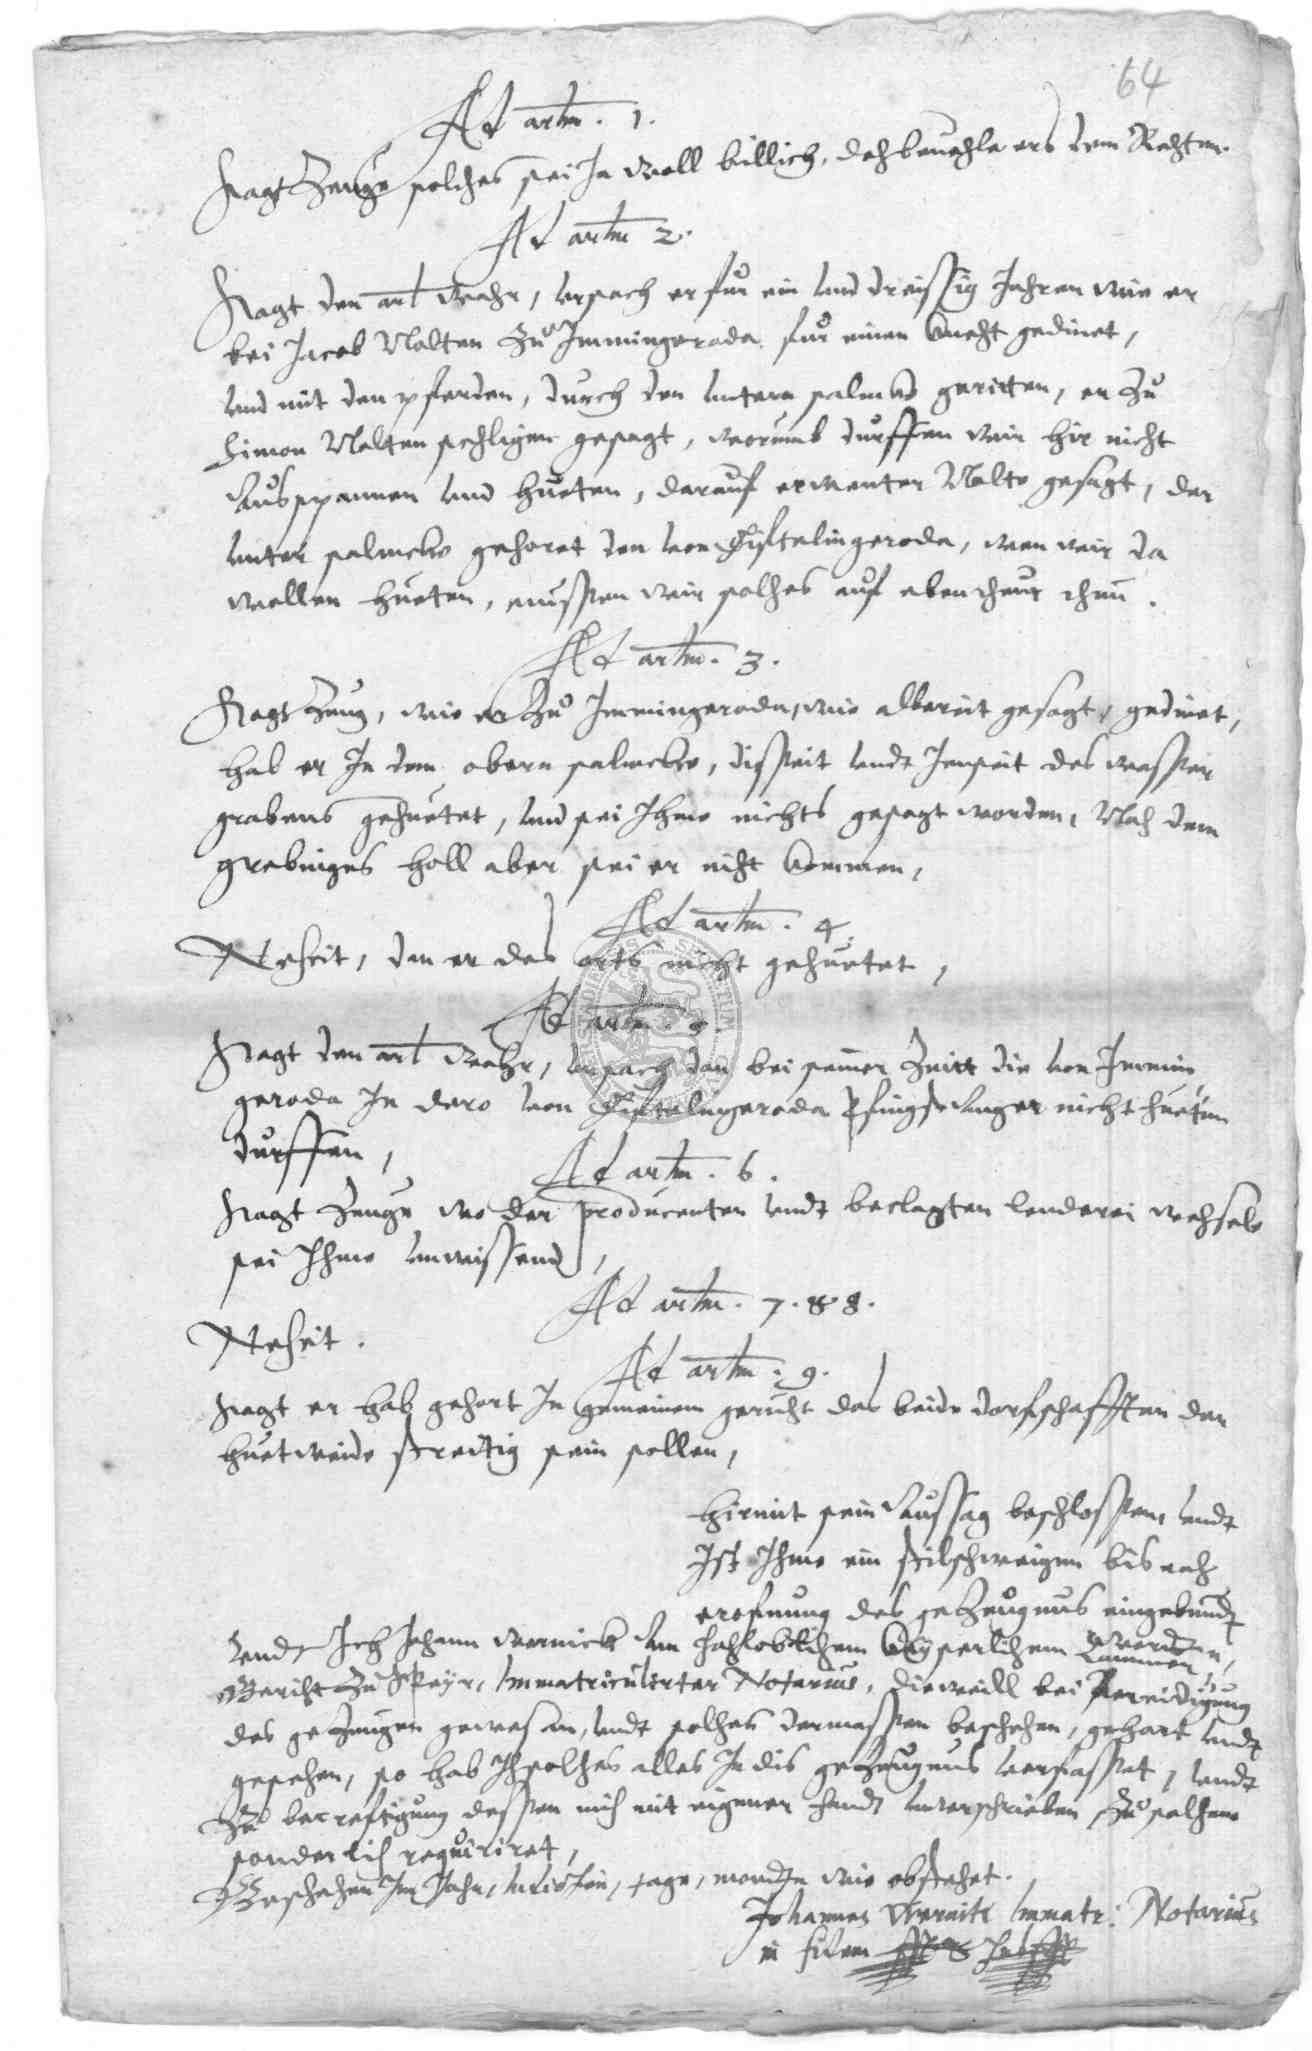 64
Ad artm. 1.
Sagt Zeuge solches sei Ja woll billich, doch beuehle ers dem Rechten.
Ad artm 2.
Sagt den art wahr, ursach er fur ein und dreissig Jahren wie er
bei Jacob Nolten Zu Immingeroda fur einen Knecht gedinet,
und mit den pferden, durch den untern salmcke geritten, er Zu
Simon Nolten sehligen gesagt, worumb durffen wir hir nicht
Ausspannen und hueten, darauf ermenter Nolte gesagt, der
unter salmcke gehoret den von Tistelingeroda, wen wir da
wollen hueten, mussen wir solches auf ebentheur thun.
Ad artm. 3.
Sagt Zeug, wie er Zu Immingeroda, wie albereit gesagt, gedinet,
hab er In dem obern salmcke, disseit undt Jenseit des wasser
grabens gehuetet, und sei Ihme nichts gesagt worden, Nach dem
grebinges holl aber sei er nicht Kommen,
Ad artm. 4.
Nescit, den er des orts nicht gehuetet,
Ad artm. 5.
Sagt den art wahr, ursach dan bei seiner Zeitt die von Immin
geroda In dero von Tistelingeroda Pfingst Anger nicht hueten
durffen,
Ad artm. 6.
Sagt Zeuge wo der producenten undt beclagten lenderei wechsele
sei Ihme unwissend,
Ad artm. 7. & 8.
Nescit.
Ad artm. 9.
Sagt er hab gehort In gemeinem gerucht das beide dorfschafften der
huetweide streitig sein sollen,
hirmit sein Aussag beschlossen, undt
Ist Ihme ein stilschweigen bis nach
erofnung des geZeugnus eingebundt
worden,
Undt Ich Johann Wernick am hochloblichem Keyserlichem Cammer
Gericht Zu Speyr, Immatriculirter Notarius, dieweill bei Bereidigung
des geZeugen gewesen, undt solches dermassen beschehen, gehort undt
gesehen, so hab Ich solches alles In dis geZeugnus verfasset, undt
Zu becreftigung dessen mich mit eigener handt unterschrieben Zu solchem
sonderlich requiriret,
Geschehen Im Jahr, tage, monden wie obstehet.
Johannes Immatr: Notarius
in fidem